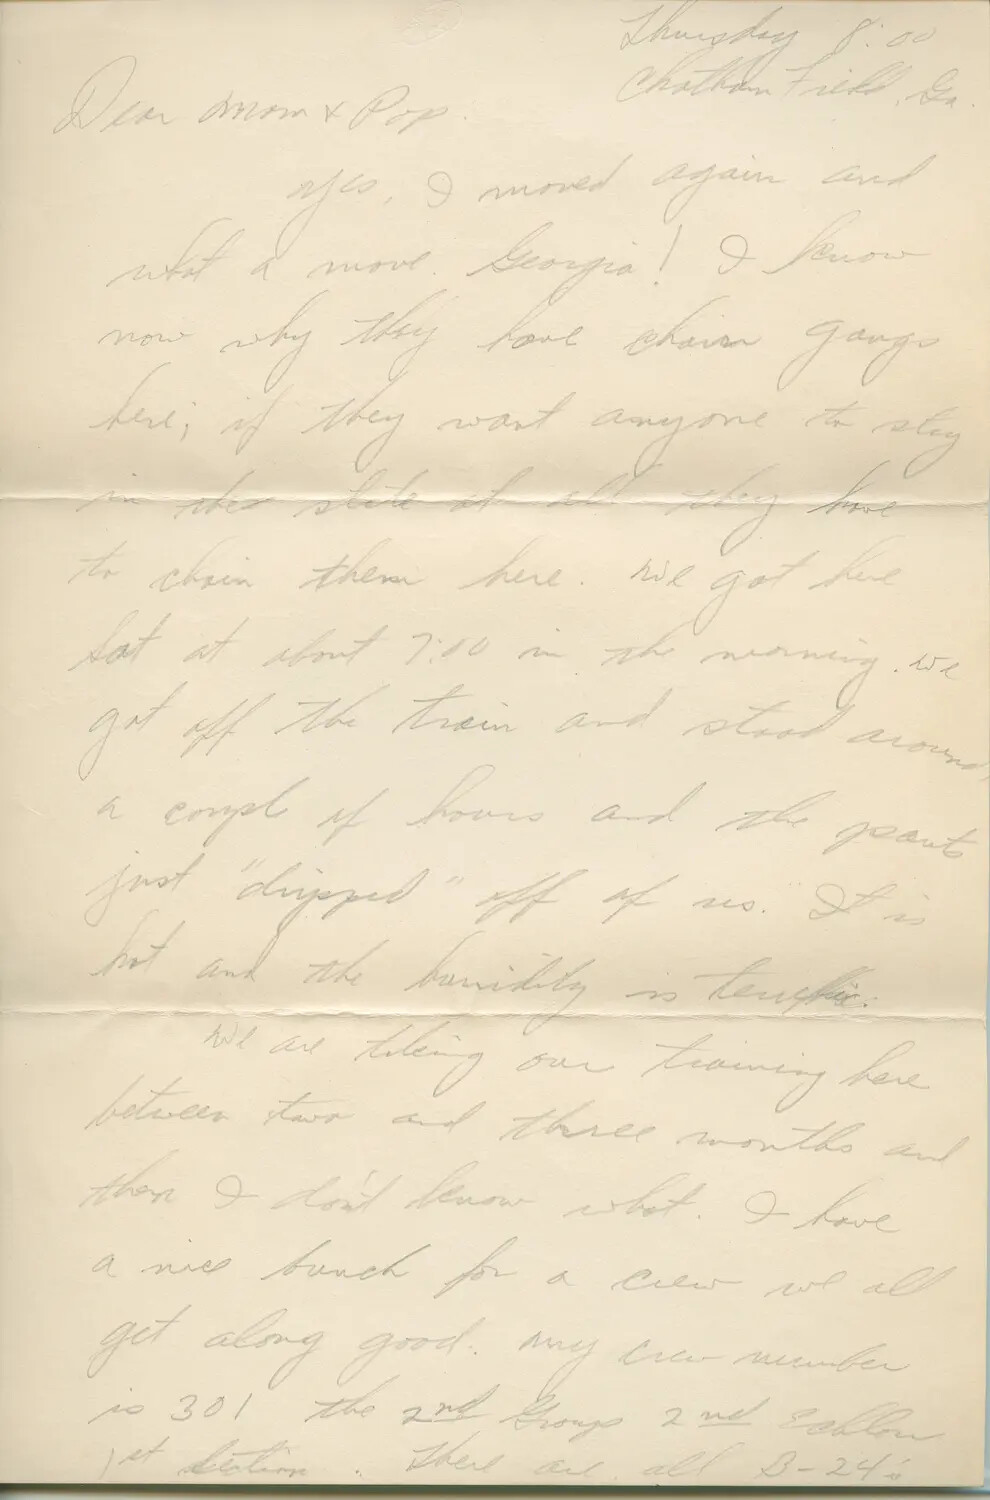 Thursday 8:00
Chatham Field, Ga.
Dear Mom & Pop.
Yes, I moved again and
what a move. Georgia! I know
now why they have chain gangs
here; if they want anyone to stay
in the state at all they have
to chain them here. We got here
Sat at about 7:00 in the morning. We
got off the train and stood around
a couple of hours and the pants
just "dripped" off of us. It is
hot and the humidity is terrific.
We are taking our training here
between two and three months and
then I don't know what. I have
a nice bunch for a crew we all
get along good. My crew number
is 301 the 2nd Group 2nd Echlon
1st Section. There are all B-24's